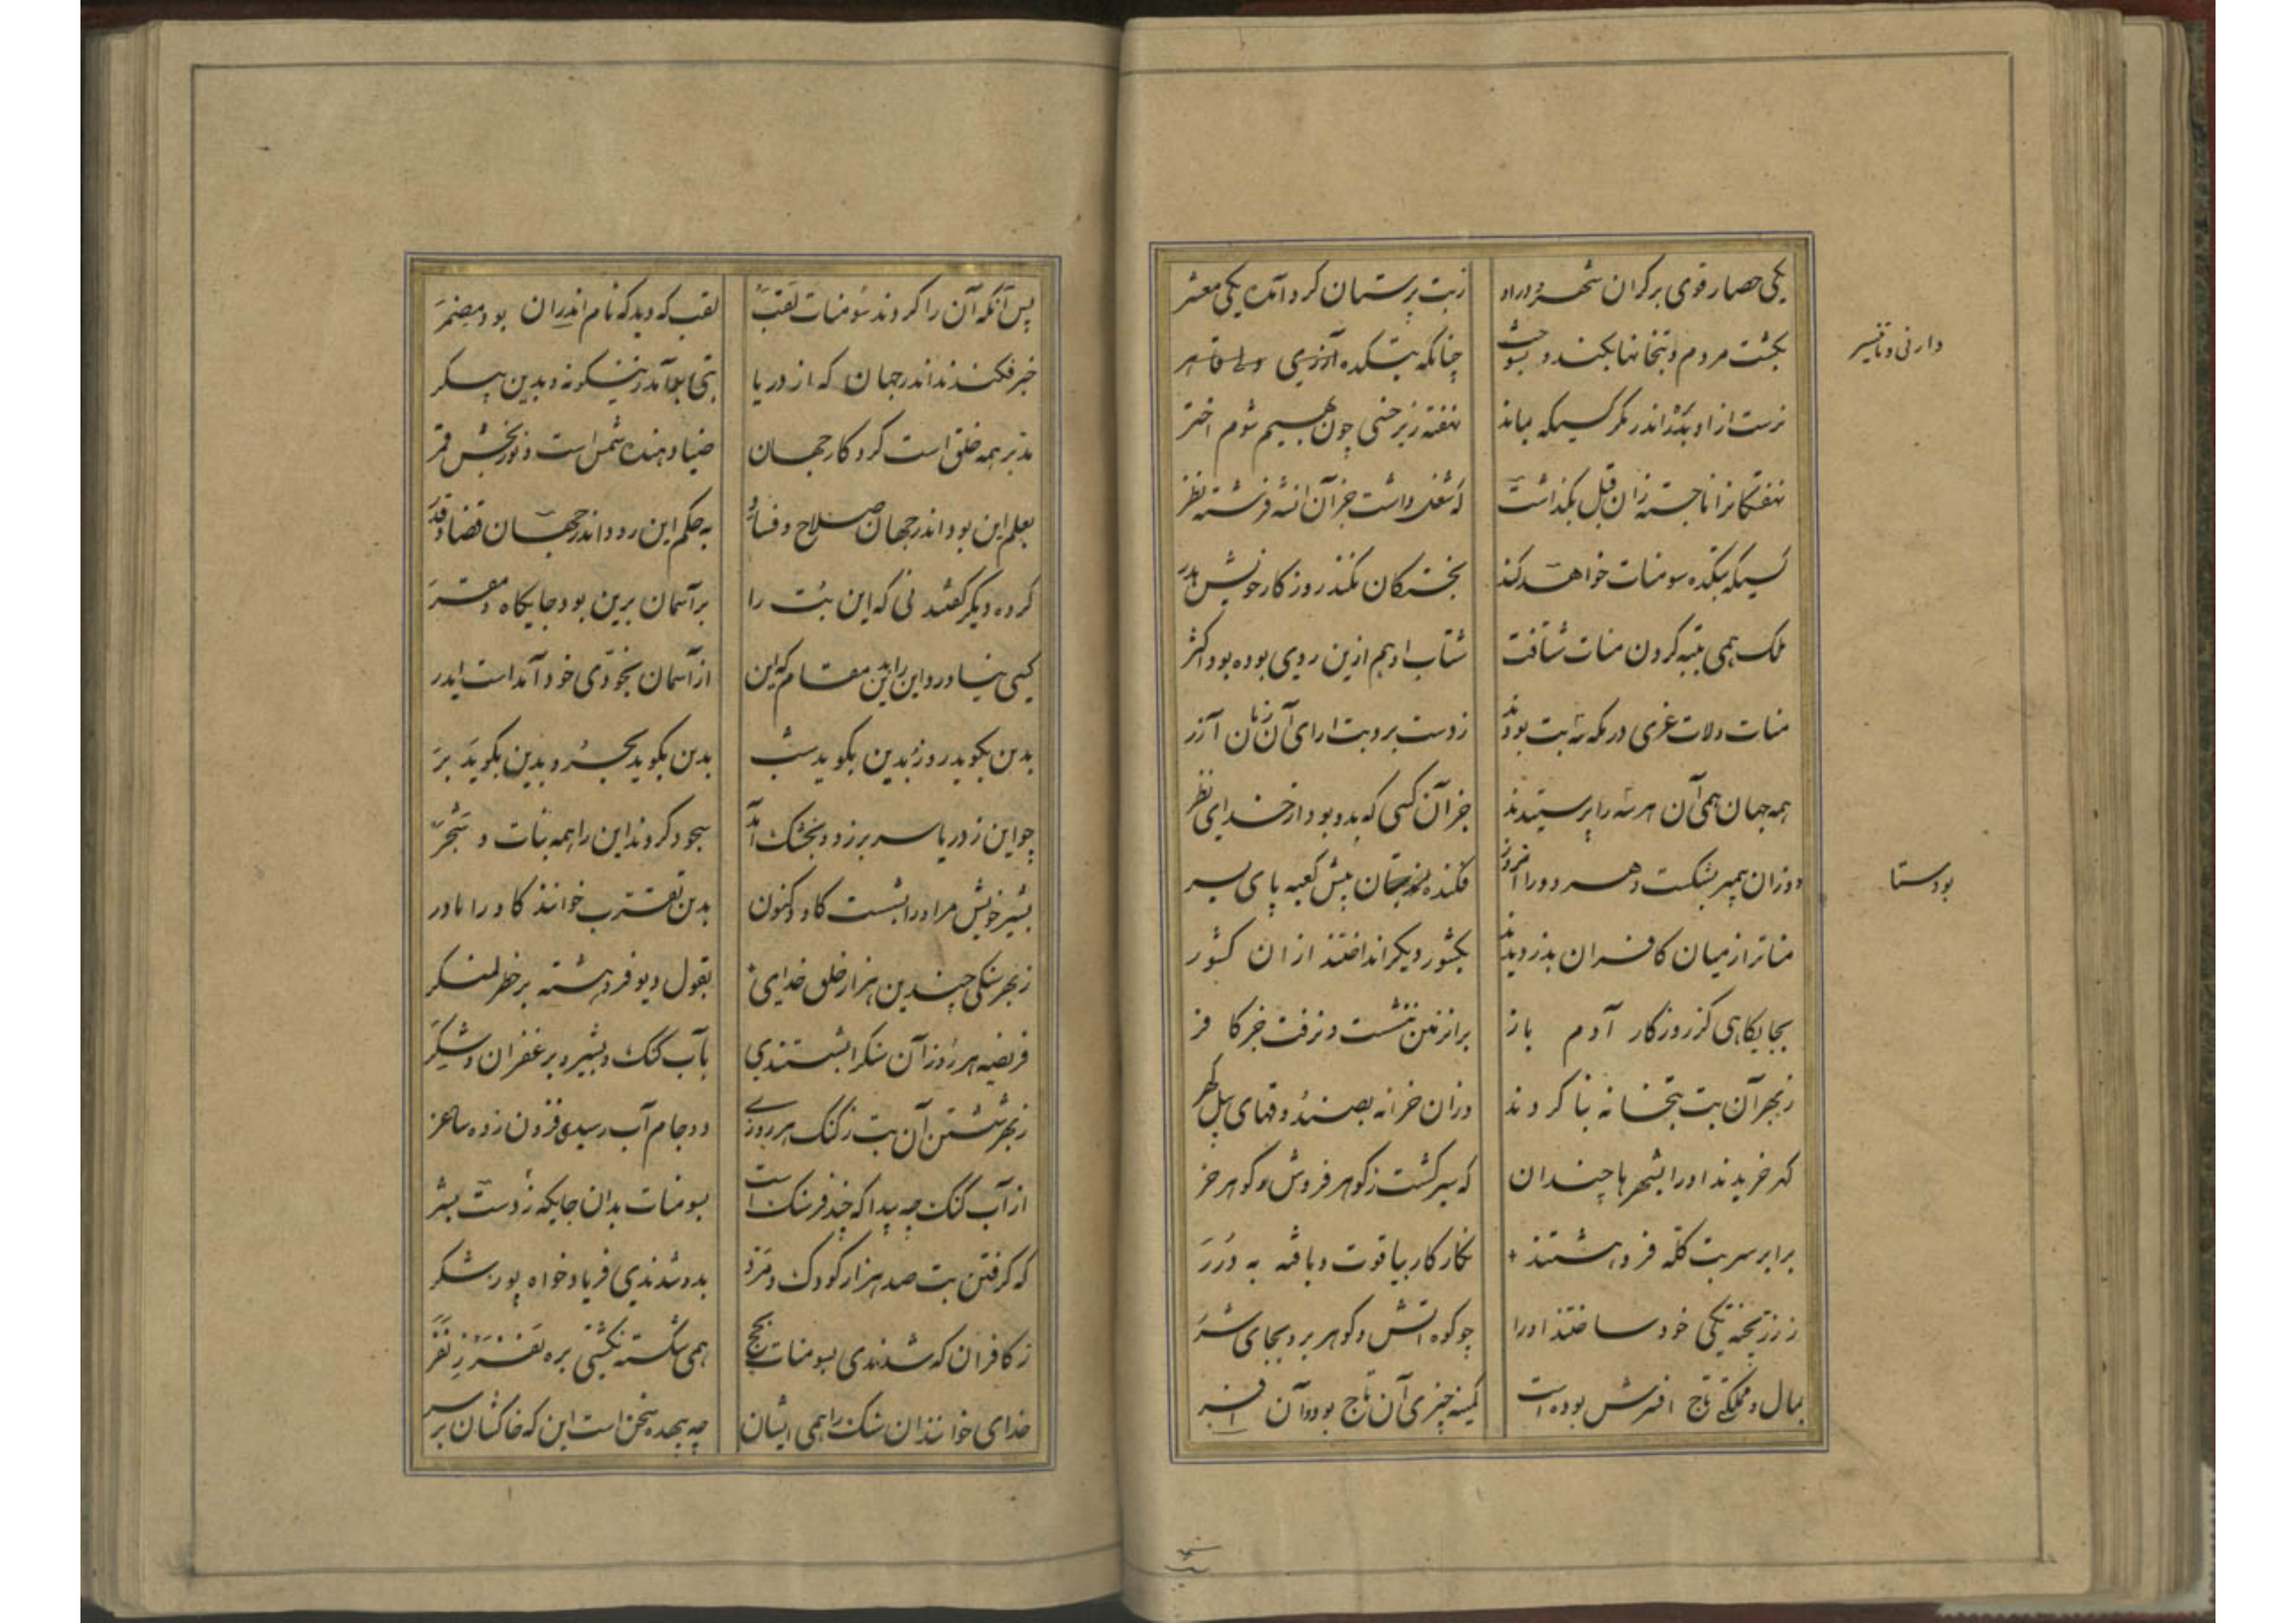 یکی حصار قوی بر کران شهر و درو
ز بت پرستان کرد آمده یکی معشر
بکشت مردم و بتخانها بکند و بسوخت
چنانکه بتکده دارنی و تانیسر
نرست از او بدر اندر مکر کسیکه بماند
نهفته زیر خسی چون بهیم شوم اختر
نهفتکانرا ناجسته زان قبل بکذاشت
که شغل داشت جز آن انشه فرشته نظر
کسیکه بتکده سومنات خواهد کند
بخستکان نکند روزکار خویش هدر
ملک همی بتبه کردن منات شتافت
شتاب او هم ازین روی بوده بود اکثر
منات و لات و عزی در مکه سه بت بودند
ز دست برد بت ارای آن زمان آزر
همه جهان همی آن هر سه را پرستیدند
جز آن کسی که بدو بود از خدای نظر
دو زان پیمبر بشکست و هر دو را انروز
فکنده بود ستان پیش کعبه پای سپر
منات را ز میان کافران بدزدیدند
بکشور دیکر انداختند از ان کشور
بجایکاهی کز روزکار آدم باز
بر آن زمین ننشست و نرفت جز کافر
ز بهر آن بت بتخانه بنا کردند
دران خزانه بصندوقهای پیل کهر
کهر خریدند او را بشهرها چندان
که سیر کشت ز کوهر فروش کوهر خر
برابر سر بت کله فرو هشتند
نکار کار بیاقوت و بافته به درر
ز زر پخته یکی خود ساختند او را
چو کوه اتش و کوهر برو بجای شرر
بمال و مملکت تاج افسرش بوده است
کمینه چیزی آن تاج بود و آن افسر
دارنی و تانیسر
بود ستا
پس آنکه آن را کردند سومنات لقب
لقب که دید که نام اندران بود مضمر
خبر فکندند اندر جهان که از دریا
بتی بر آمد زینکونه و بدین پیکر
مدبر همه خلق است کردکار جهان
ضیا دهنده شمس است و نور بخش قمر
بعلم این بود اندر جهان صلاح و فساد
به حکم این رود اندر جهان قضا و قدر
کروه دیکر کفتند نی که این بت را
بر آسمان برین بود جایکاه و مقر
کسی نیاورد این را بدین مقام که این
از آسمان بخودی خود آمداست ایدر
بدین بکوید روز و بدین بکوید شب
بدین بکوید بحر و بدین بکوید بر
چو این ز دریا سر برزد و بخشک آمد
سجود کردند این را همه نبات و شجر
بشیر خویش مر او را بشست کاو و کنون
بدین تقرب خوانند کاو را مادر
ز بهر سنکی چندین هزار خلق خدای
بقول دیو فرو هشته بر خطر لنکر
فریضه هر روز آن سنکرا بشستندی
بآب کنک و بشیر و بزعفران و شکر
ز بهر شستن آن بت ز کنک هر روزی
دو جام آب رسیدی فزون ز ده ساغر
از آب کنک چه پیدا که چند فرسنک است
بسومنات بدان جایکه ز دست بشر
که کرفتن بت صد هزار کودک و مرد
بدو شدندی فریاد خواه و پوزشکر
ز کافران که شدندی بسومنات بحج
همی شکسته نکشتی بره نفر ز نفر
خدای خوانند ان سنک را همی ایشان
چه بیهده سخن است این که خاکشان بر سر